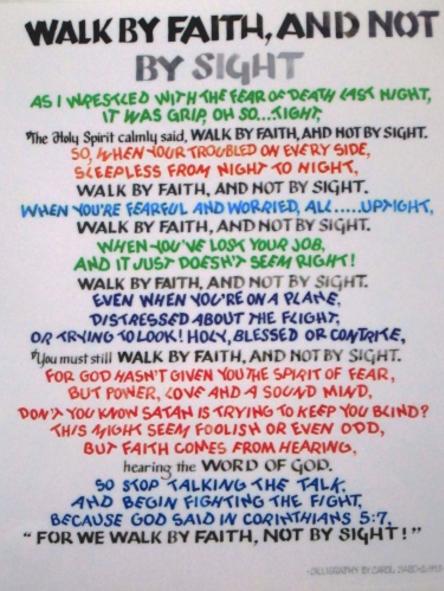 WALK BY FAITH, AND NOT
BY SIGHT
AS I WRESTLED WITH THE FEAR OF DEATH LAST NIGHT,
IT WAS GRIP, OH SO...TIGHT,
The Holy Spirit calmly said, WALK BY FAITH, AND NOT BY SIGHT.
SO, WHEN YOUR TROUBLED ON EVERY SIDE,
SLEEPLESS FROM NIGHT TO NIGHT,
WALK BY FAITH, AND NOT BY SIGHT.
WHEN YOU'RE FEARFUL AND WORRIED, ALL.....UPTIGHT,
WALK BY FAITH, AND NOT BY SIGHT.
WHEN YOU'VE LOST YOUR JOB,
AND IT JUST DOESN'T SEEM RIGHT!
WALK BY FAITH, AND NOT BY SIGHT.
EVEN WHEN YOU'RE ON A PLANE,
DISTRESSED ABOUT THE FLIGHT,
OR TRYING TO LOOK! HOLY, BLESSED OR CONTRITE,
You must still WALK BY FAITH, AND NOT BY SIGHT.
FOR GOD HASN'T GIVEN YOU THE SPIRIT OF FEAR,
BUT POWER, LOVE AND A SOUND MIND,
DON'T YOU KNOW SATAN IS TRYING TO KEEP YOU BLIND?
THIS MIGHT SEEM FOOLISH OR EVEN ODD,
BUT FAITH COMES FROM HEARING,
hearing the WORD OF GOD.
SO STOP TALKING THE TALK,
AND BEGIN FIGHTING THE FIGHT,
BECAUSE GOD SAID IN CORINTHIANS 5:7,
"FOR WE WALK BY FAITH, NOT BY SIGHT!"
CALLIGRAPHY BY CAROL